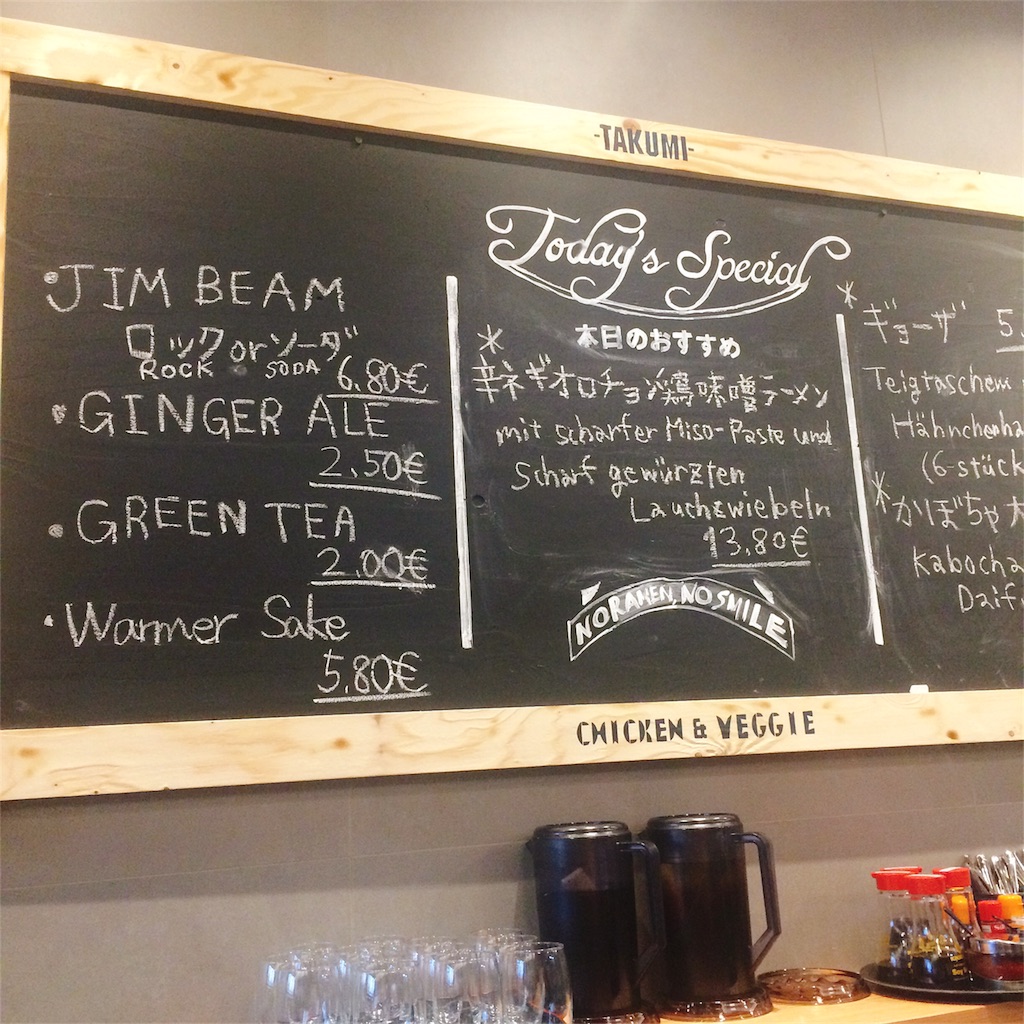 -TAKUMI-
• JIM BEAM
ロック or ソーダ
ROCK SODA 6.80€
• GINGER ALE
2.50€
• GREEN TEA
2.00€
• Warmer Sake
5.80€
Today's Special
本日のおすすめ
* 辛ネギオロチョン鶏味噌ラーメン
mit scharfer Miso-Paste und
Scharf gewürzten
Lauchzwiebeln
13,80€
NO RAMEN, NO SMILE
* ギョーザ 5.
Teigtaschen
Hähnchenha
(6-stück
* かぼちゃ大
Kabocha
Daif
CHICKEN & VEGGIE